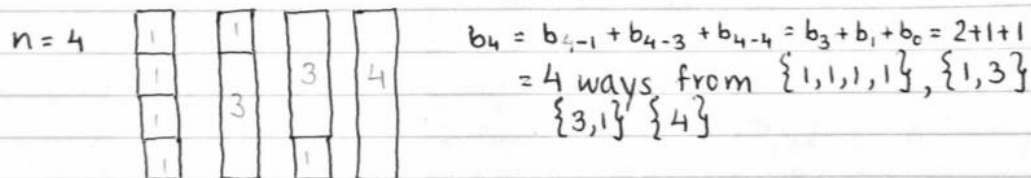 n = 4
1 1 3 4
1 3
1
1 1
b₄ = b₄₋₁ + b₄₋₃ + b₄₋₄ = b₃ + b₁ + b₀ = 2+1+1
= 4 ways from {1,1,1,1}, {1,3}
{3,1} {4}